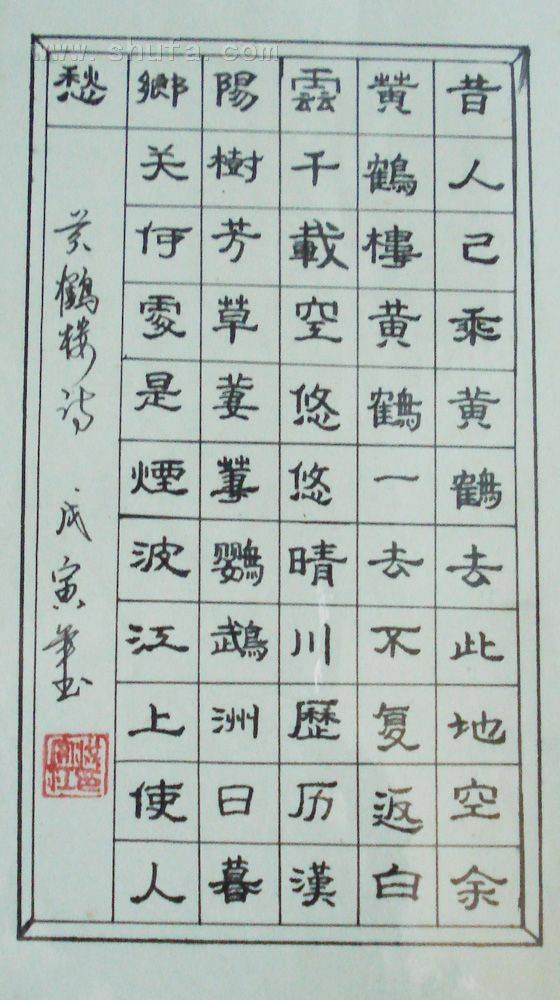 www.shufa.com
昔人已乘黄鶴去此地空余
黄鶴樓黄鶴一去不复返白
雲千載空悠悠晴川歷历漢
陽樹芳草萋萋鹦鵡洲日暮
鄉关何處是煙波江上使人
愁
黄鶴楼诗 戊寅年书